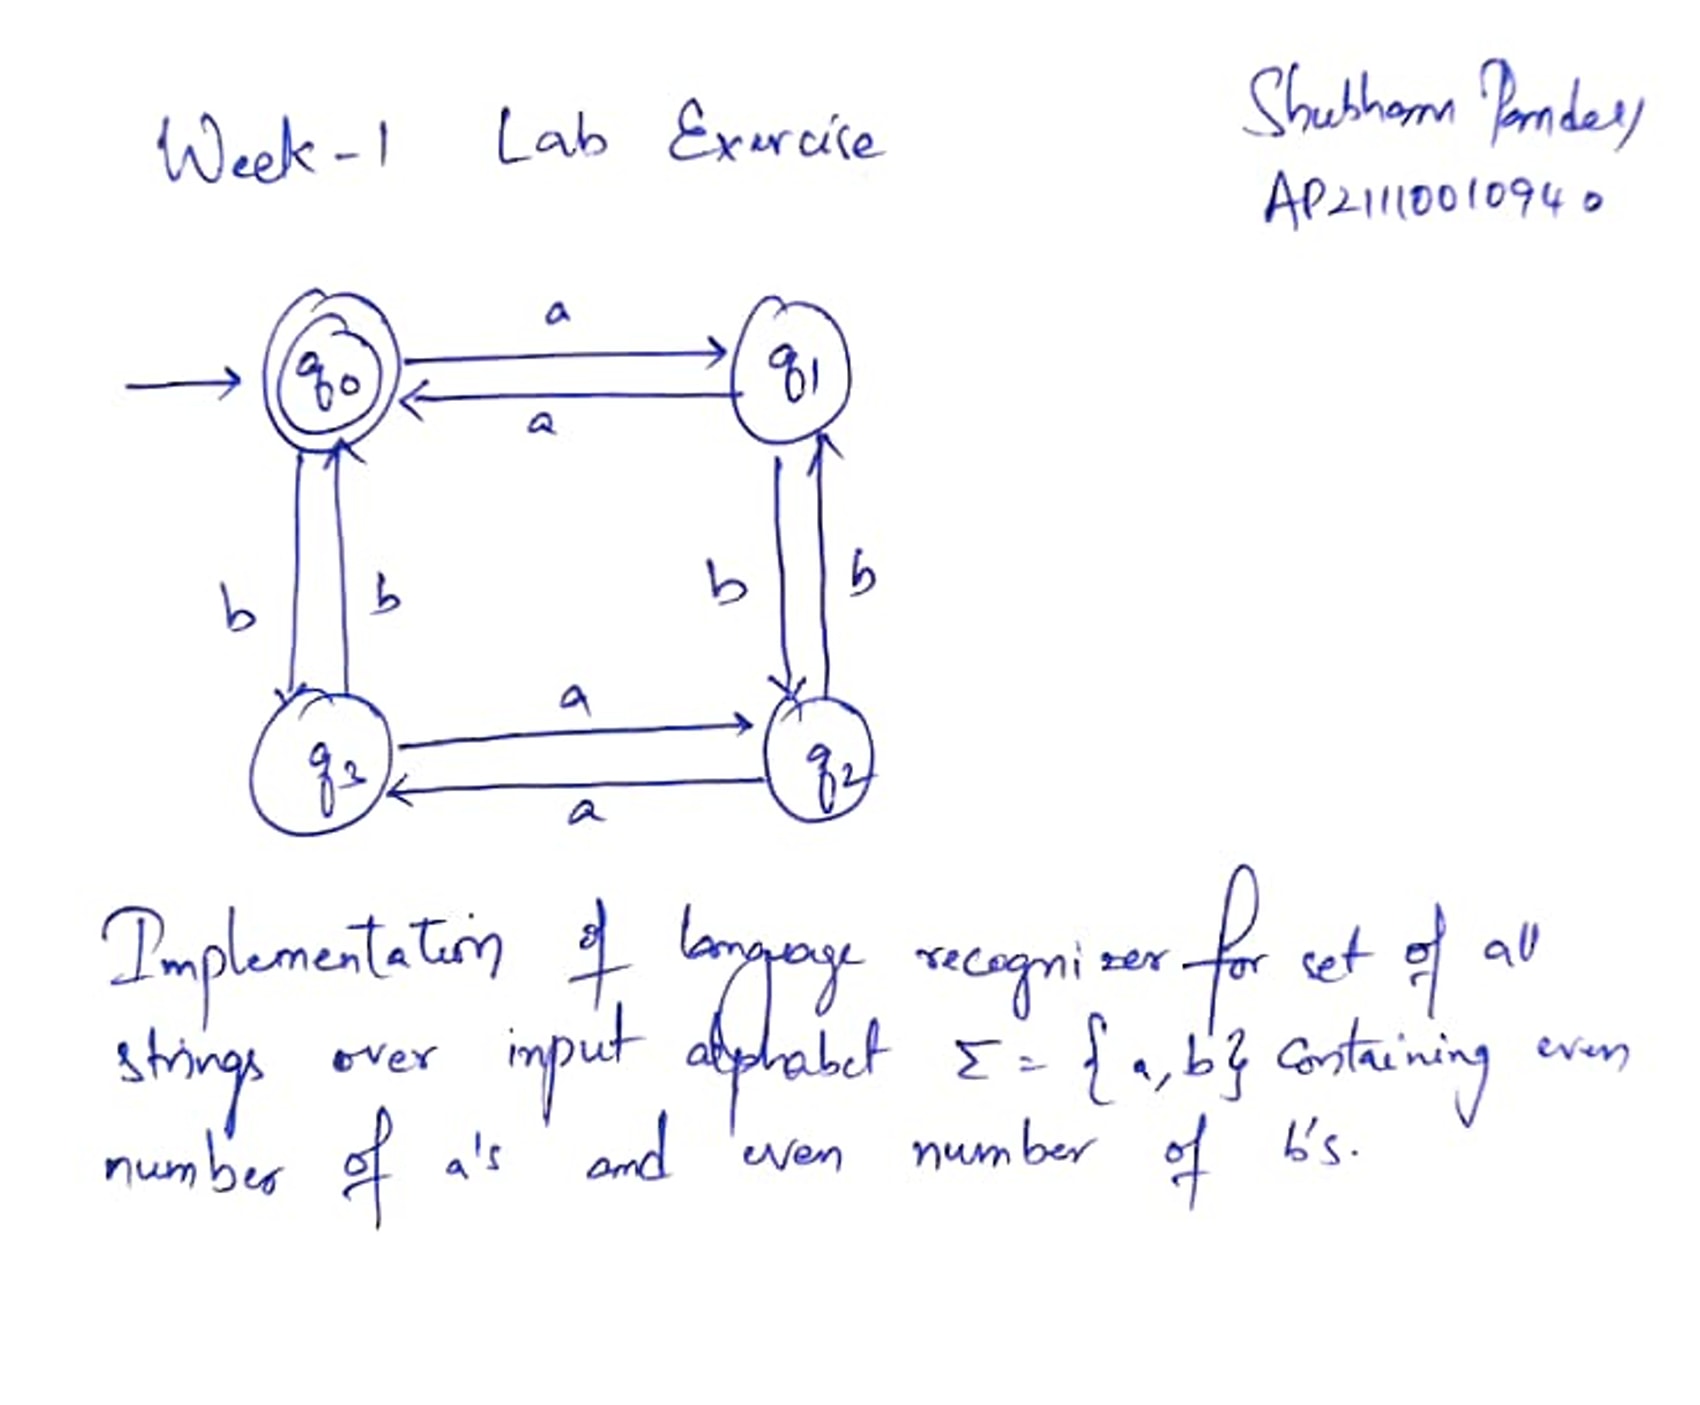 Week-1 Lab Exercise
Shubham Pandey
AP21110010940
a
q0 q1
a
b b b b
a
q3 q2
a
Implementation of language recognizer for set of all
strings over input alphabet Σ = {a, b} containing even
number of a's and even number of b's.